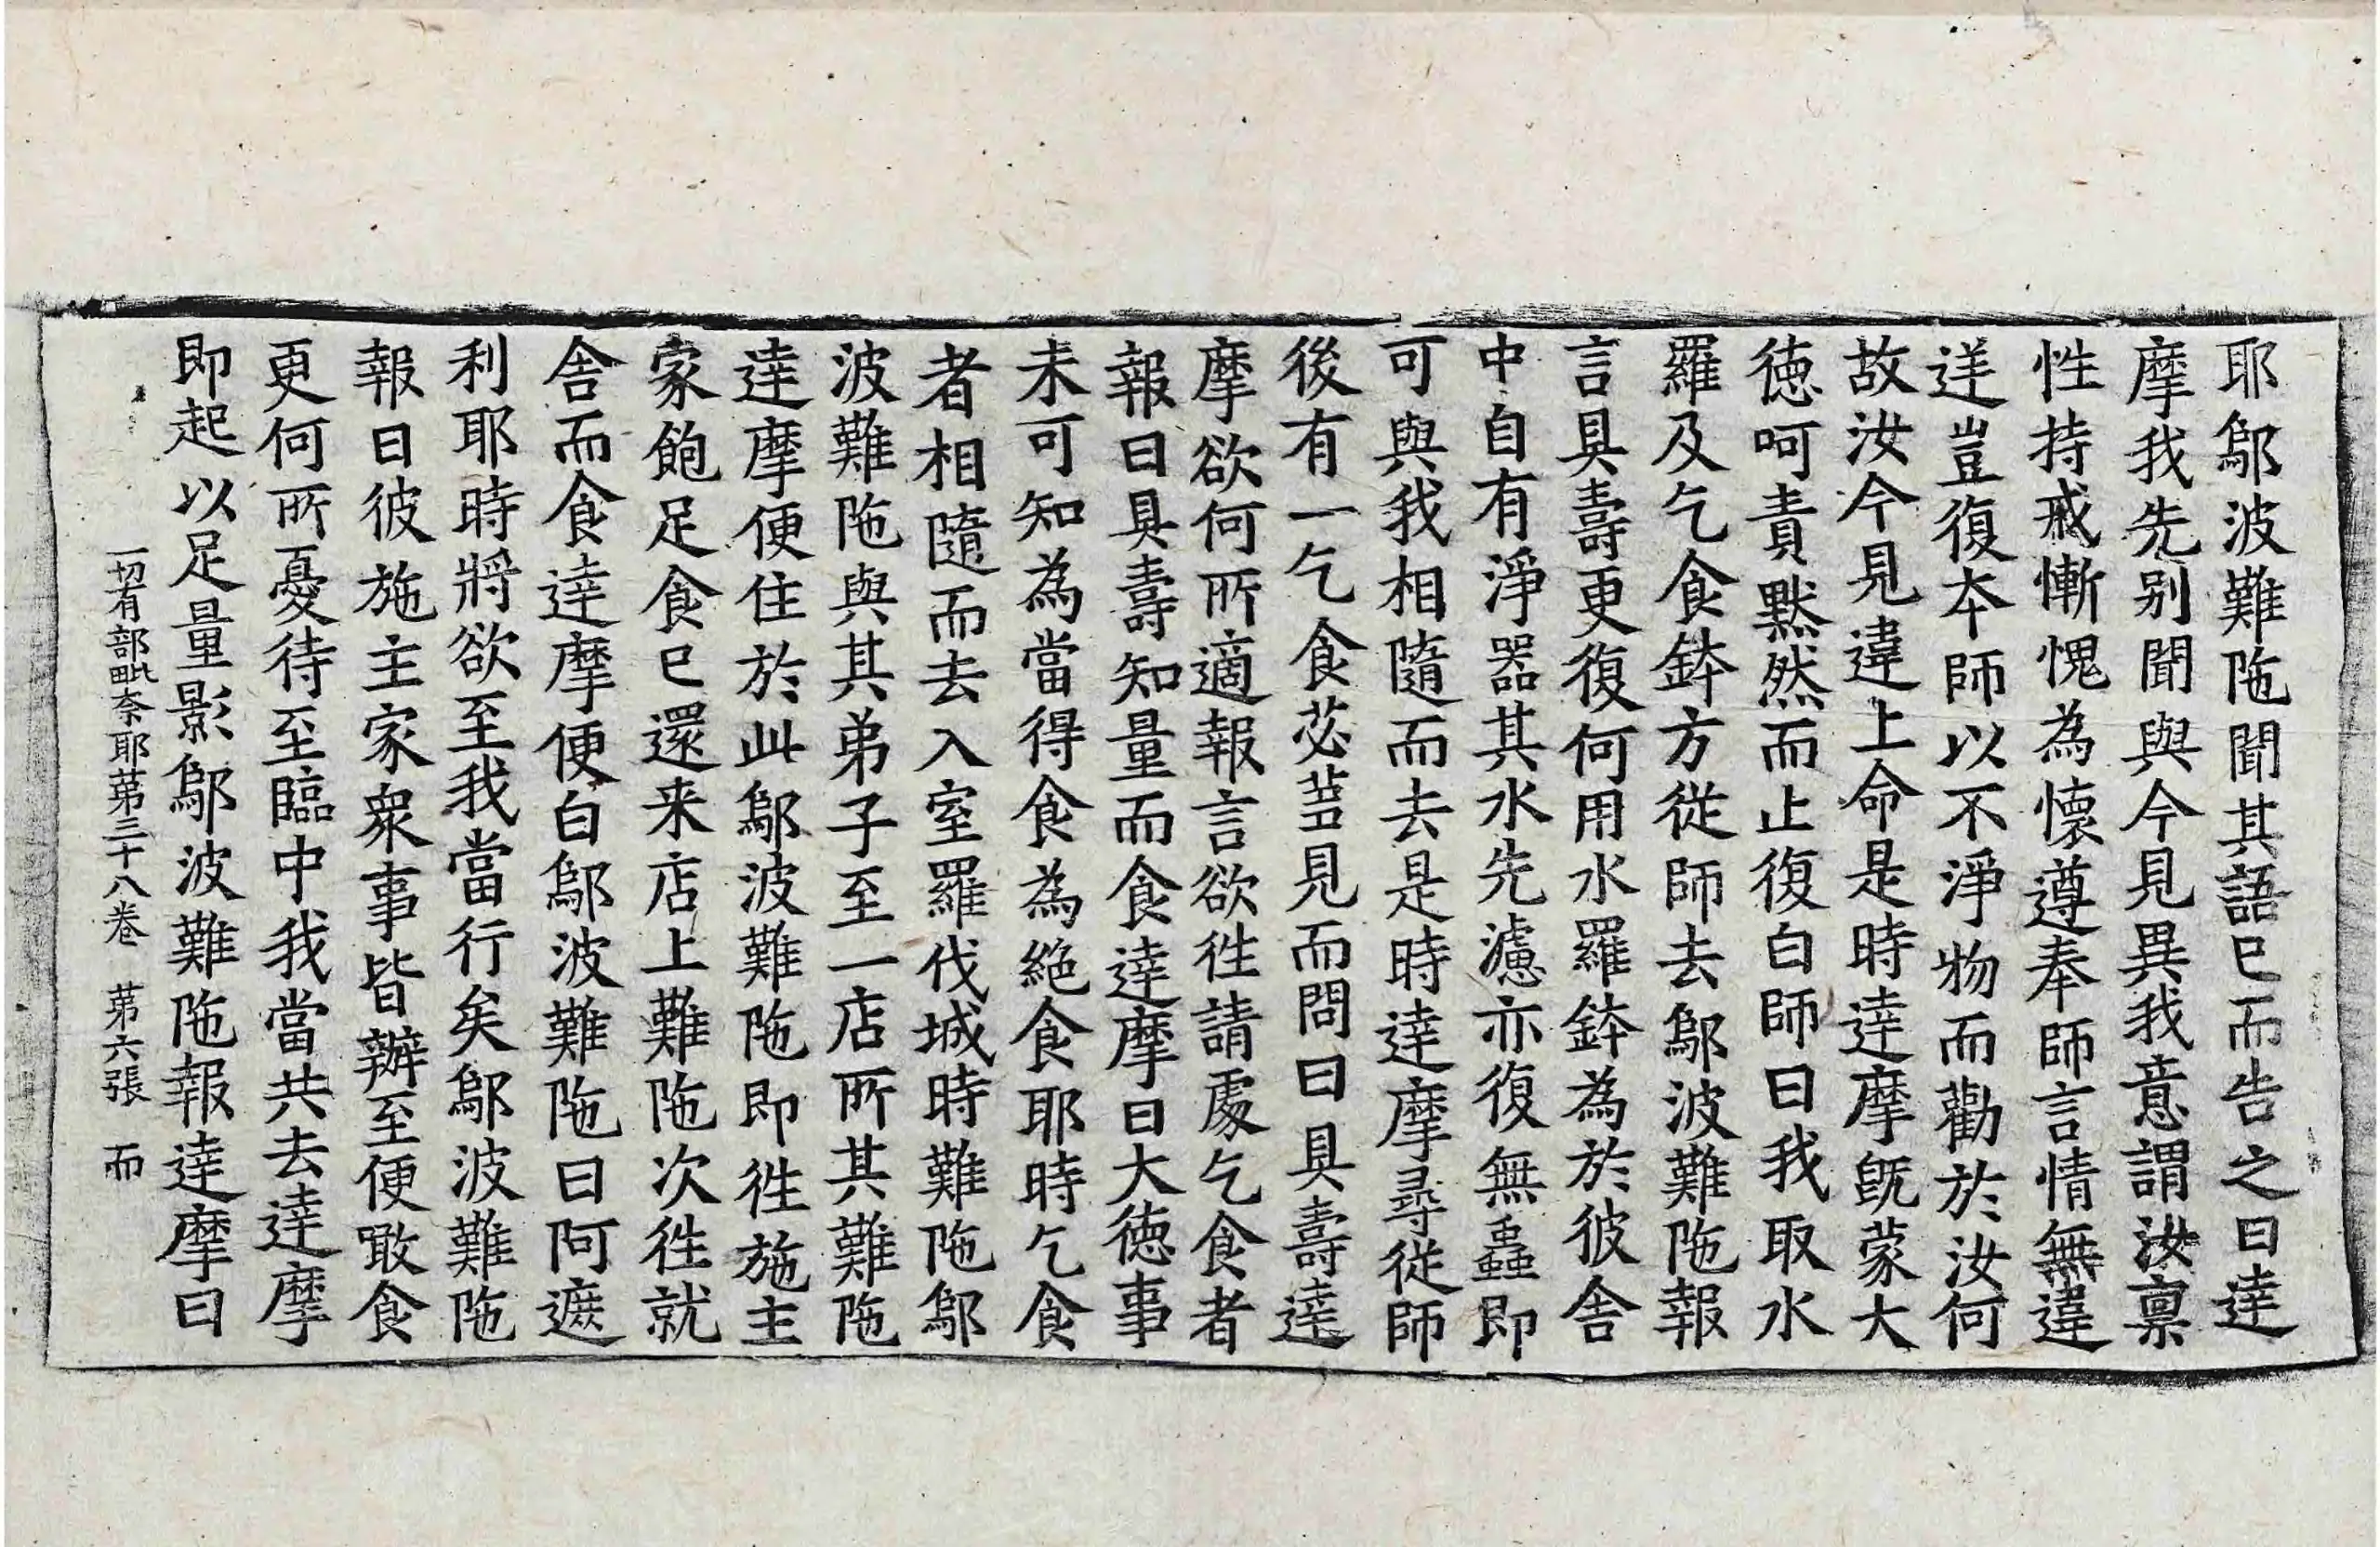 耶鄔波難陁聞其語已而告之曰達
摩我先别聞與今見異我意謂汝禀
性持戒慚愧為懷遵奉師言情無違
逆豈復夲師以不淨物而勸於汝何
故汝今見違上命是時達摩旣蒙大
徳呵責黙然而止復白師曰我取水
羅及乞食鉢方從師去鄔波難陁報
言具壽更復何用水羅鉢為於彼舍
中自有淨器其水先濾亦復無蟲即
可與我相隨而去是時達摩尋從師
後有一乞食苾蒭見而問曰具壽達
摩欲何所適報言欲徃請處乞食者
報曰具壽知量而食達摩曰大徳事
未可知為當得食為絶食耶時乞食
者相隨而去入室羅伐城時難陁鄔
波難陁與其弟子至一店所其難陁
達摩便住於此鄔波難陁即徃施主
家飽足食已還来店上難陁次徃就
舍而食達摩便白鄔波難陁曰阿遮
利耶時將欲至我當行矣鄔波難陁
報曰彼施主家衆事皆辦至便噉食
更何所憂待至臨中我當共去達摩
即起以足量影鄔波難陁報達摩曰
一切有部毗奈耶苐三十八卷 苐六張 而